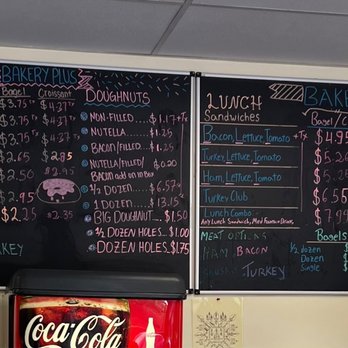 BAKERY PLUS
Bagel Croissant
$3.75 Tx $4.37 Tx
$3.75 Tx $4.37 Tx
$3.75 Tx $4.37 Tx
$2.65 $2.95
2.50
2.95
$2.25 $2.35
KEY
DOUGHNUTS
NON-FILLED..... $1.17+Tx
NUTELLA....... $1.25
BACON/FILLED... $1.25
NUTELLA/FILLED/ $0.20
BACON add on to Box
1/2 DOZEN ..... $6.57
1 DOZEN ...... 13.15
BIG DOUGHNUT... $1.50
1/2 DOZEN HOLES... $1.00
DOZEN HOLES. $1.75
LUNCH
Sandwiches
Bacon, Lettuce, Tomato +Tx
Turkey, Lettuce, Tomato
Ham, Lettuce, Tomato
Turkey Club
Lunch Combo
Any Lunch Sandwich, Med Fountain Drink,
MEAT OPTIONS
HAM BACON
TURKEY
BAKE
Bagel/C
$4.95
$5.
$5.
$6.5
$7.99
Bagels
1/2 dozen $
Dozen
Single $
Coca-Cola